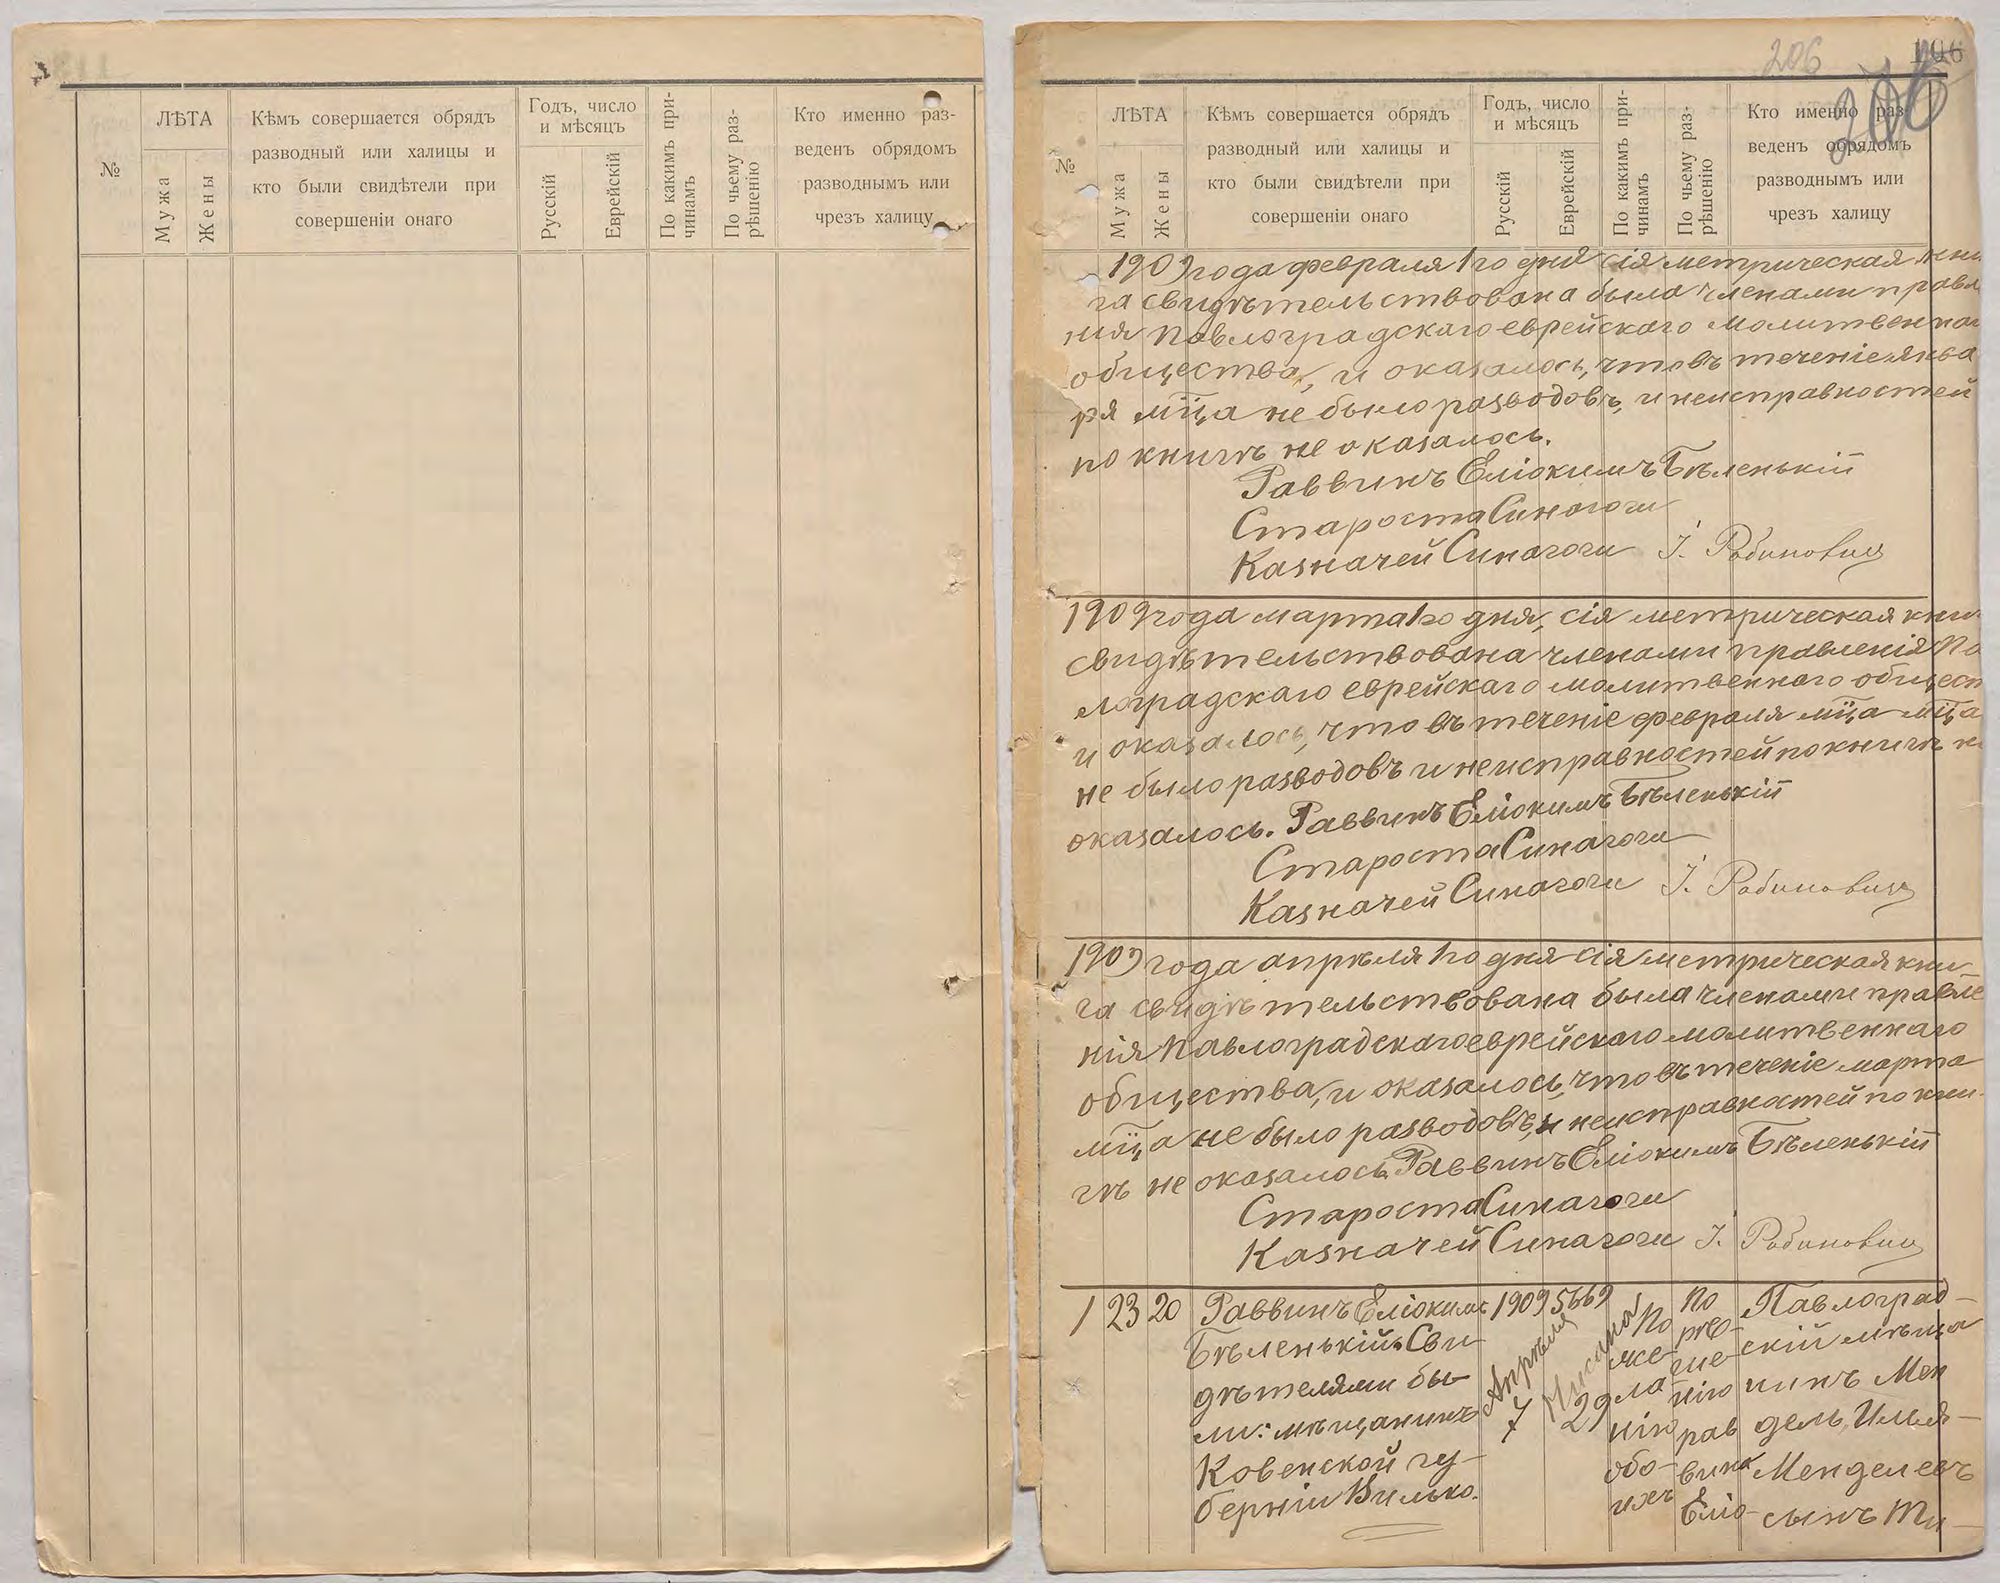 №
ЛѢТА
Мужа
Жены
Кѣмъ совершается обрядъ
разводный или халицы и
кто были свидѣтели при
совершеніи онаго
Годъ, число
и мѣсяцъ
Русскій
Еврейскій
По какимъ при-
чинамъ
По чьему раз-
рѣшенію
Кто именно раз-
веденъ обрядомъ
разводнымъ или
чрезъ халицу
206
106
206
№
ЛѢТА
Мужа
Жены
Кѣмъ совершается обрядъ
разводный или халицы и
кто были свидѣтели при
совершеніи онаго
Годъ, число
и мѣсяцъ
Русскій
Еврейскій
По какимъ при-
чинамъ
По чьему раз-
рѣшенію
Кто именно раз-
веденъ обрядомъ
разводнымъ или
чрезъ халицу
1909 года февраля 1го дня сія метрическая кни
га свидѣтельствована была членами правл
нія Павлоградскаго еврейскаго молитвеннаг
общества, и оказалось, что въ теченіе янва
ря мц̃а не было разводовъ, и неисправностей
по книгѣ не оказалось.
Раввинъ Еліокимъ Бѣленькій
Староста Синагоги
Казначей Синагоги І. Рабиновичъ
1909 года марта 1го дня, сія метрическая кни
свидѣтельствована членами правленія Па
лоградскаго еврейскаго молитвеннаго общест
и оказалось, что въ теченіе февраля мц̃а мц̃а
не было разводовъ и неисправностей по книгѣ н
оказалось. Раввинъ Еліокимъ Бѣленькій
Староста Синагоги
Казначей Синагоги І. Рабиновичъ
1909 года апрѣля 1го дня сія метрическая кни-
га свидѣтельствована была членами правле
нія Павлоградскаго еврейскаго молитвеннаго
общества, и оказалось, что въ теченіе марта
мц̃а не было разводовъ, и неисправностей по кни-
гѣ не оказалось. Раввинъ Еліокимъ Бѣленькій
Староста Синагоги
Казначей Синагоги І. Рабиновичъ
1
23
20
Раввинъ Еліокимъ
Бѣленькій. Сви
дѣтелями бы-
ли: мѣщанинъ
Ковенской гу-
берніи Вилько.
1909
Апрѣля
7
5669
Нисана
29
По
же-
ла
нію
обо-
ихъ
По
рѣ-
ше-
нію
рав
вина
Еліо-
Павлоград-
скій мѣща
нинъ Мен
дель Илья-
Менделевъ
сынъ Ти-